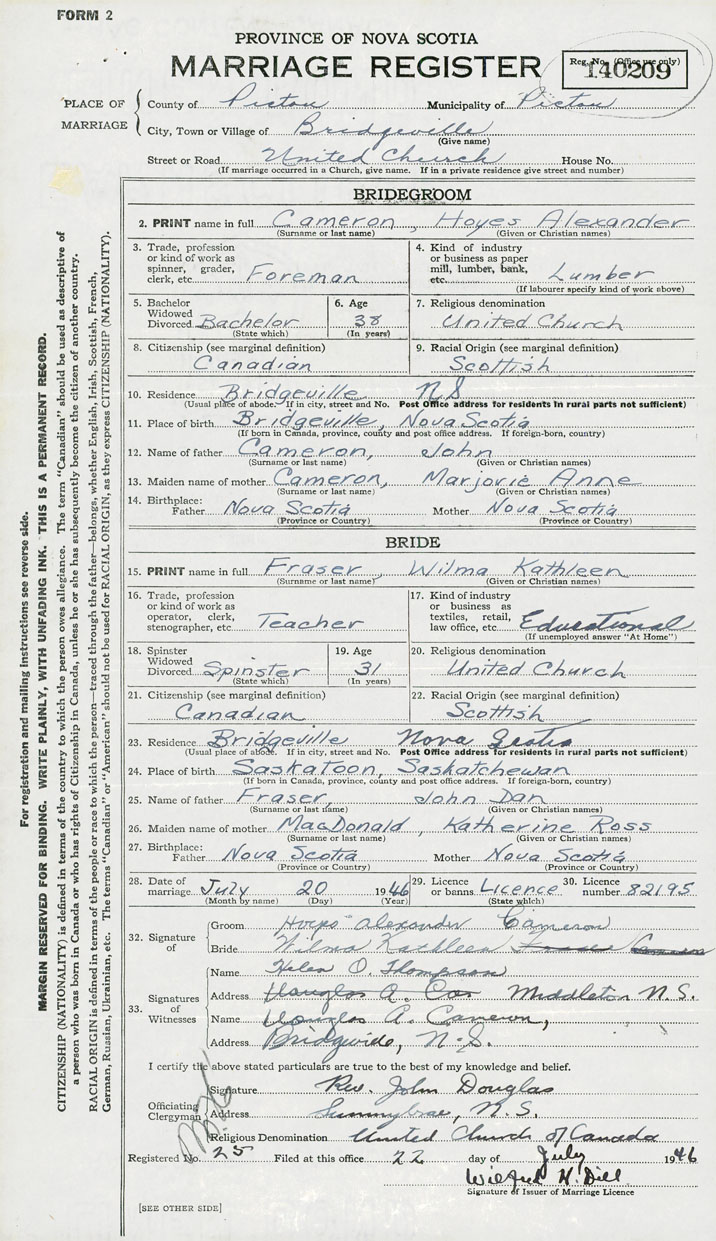 FORM 2
PROVINCE OF NOVA SCOTIA
MARRIAGE REGISTER
Reg. No. (Office use only)
140209
PLACE OF MARRIAGE
County of Pictou Municipality of Pictou
City, Town or Village of Bridgeville
(Give name)
Street or Road United Church House No.
(If marriage occurred in a Church, give name. If in a private residence give street and number)
BRIDEGROOM
2. PRINT name in full Cameron, Hoyes Alexander
(Surname or last name) (Given or Christian names)
3. Trade, profession or kind of work as spinner, grader, clerk, etc. Foreman
4. Kind of industry or business as paper mill, lumber, bank, etc. Lumber
(If labourer specify kind of work above)
5. Bachelor Widowed Divorced Bachelor (State which)
6. Age 38 (In years)
7. Religious denomination United Church
8. Citizenship (see marginal definition) Canadian
9. Racial Origin (see marginal definition) Scottish
10. Residence Bridgeville N S
(Usual place of abode. If in city, street and No. Post Office address for residents in rural parts not sufficient)
11. Place of birth Bridgeville, Nova Scotia
(If born in Canada, province, county and post office address. If foreign-born, country)
12. Name of father Cameron, John
(Surname or last name) (Given or Christian names)
13. Maiden name of mother Cameron, Marjorie Anne
(Surname or last name) (Given or Christian names)
14. Birthplace: Father Nova Scotia Mother Nova Scotia
(Province or Country) (Province or Country)
BRIDE
15. PRINT name in full Fraser, Wilma Kathleen
(Surname or last name) (Given or Christian names)
16. Trade, profession or kind of work as operator, clerk, stenographer, etc. Teacher
17. Kind of industry or business as textiles, retail, law office, etc. Educational
(If unemployed answer "At Home")
18. Spinster Widowed Divorced Spinster (State which)
19. Age 31 (In years)
20. Religious denomination United Church
21. Citizenship (see marginal definition) Canadian
22. Racial Origin (see marginal definition) Scottish
23. Residence Bridgeville Nova Scotia
(Usual place of abode. If in city, street and No. Post Office address for residents in rural parts not sufficient)
24. Place of birth Saskatoon, Saskatchewan
(If born in Canada, province, county and post office address. If foreign-born, country)
25. Name of father Fraser, John Dan
(Surname or last name) (Given or Christian names)
26. Maiden name of mother MacDonald, Katherine Ross
(Surname or last name) (Given or Christian names)
27. Birthplace: Father Nova Scotia Mother Nova Scotia
(Province or Country) (Province or Country)
28. Date of marriage July 20 1946
(Month by name) (Day) (Year)
29. Licence or banns Licence (State which)
30. Licence number 82195
32. Signature of
Groom Hoyes Alexander Cameron
Bride Wilma Kathleen Fraser Cameron
33. Signatures of Witnesses
Name Helen O. Thompson
Address Douglas A. Cam Middleton N.S.
Name Douglas A. Cameron,
Address Bridgeville, N.S.
I certify the above stated particulars are true to the best of my knowledge and belief.
Officiating Clergyman
Signature Rev. John Douglas
Address Sunnybrae, N.S.
Religious Denomination United Church of Canada
Registered No. 25 Filed at this office 22 day of July 1946
Wilfred H. Dill
Signature of Issuer of Marriage Licence
[SEE OTHER SIDE]
For registration and mailing instructions see reverse side.
MARGIN RESERVED FOR BINDING. WRITE PLAINLY, WITH UNFADING INK. THIS IS A PERMANENT RECORD.
CITIZENSHIP (NATIONALITY) is defined in terms of the country to which the person owes allegiance. The term "Canadian" should be used as descriptive of
a person who was born in Canada or who has rights of Citizenship in Canada, unless he or she has subsequently become the citizen of another country.
RACIAL ORIGIN is defined in terms of the people or race to which the person—traced through the father—belongs, whether English, Irish, Scottish, French,
German, Russian, Ukrainian, etc. The terms "Canadian" or "American" should not be used for RACIAL ORIGIN, as they express CITIZENSHIP (NATIONALITY).